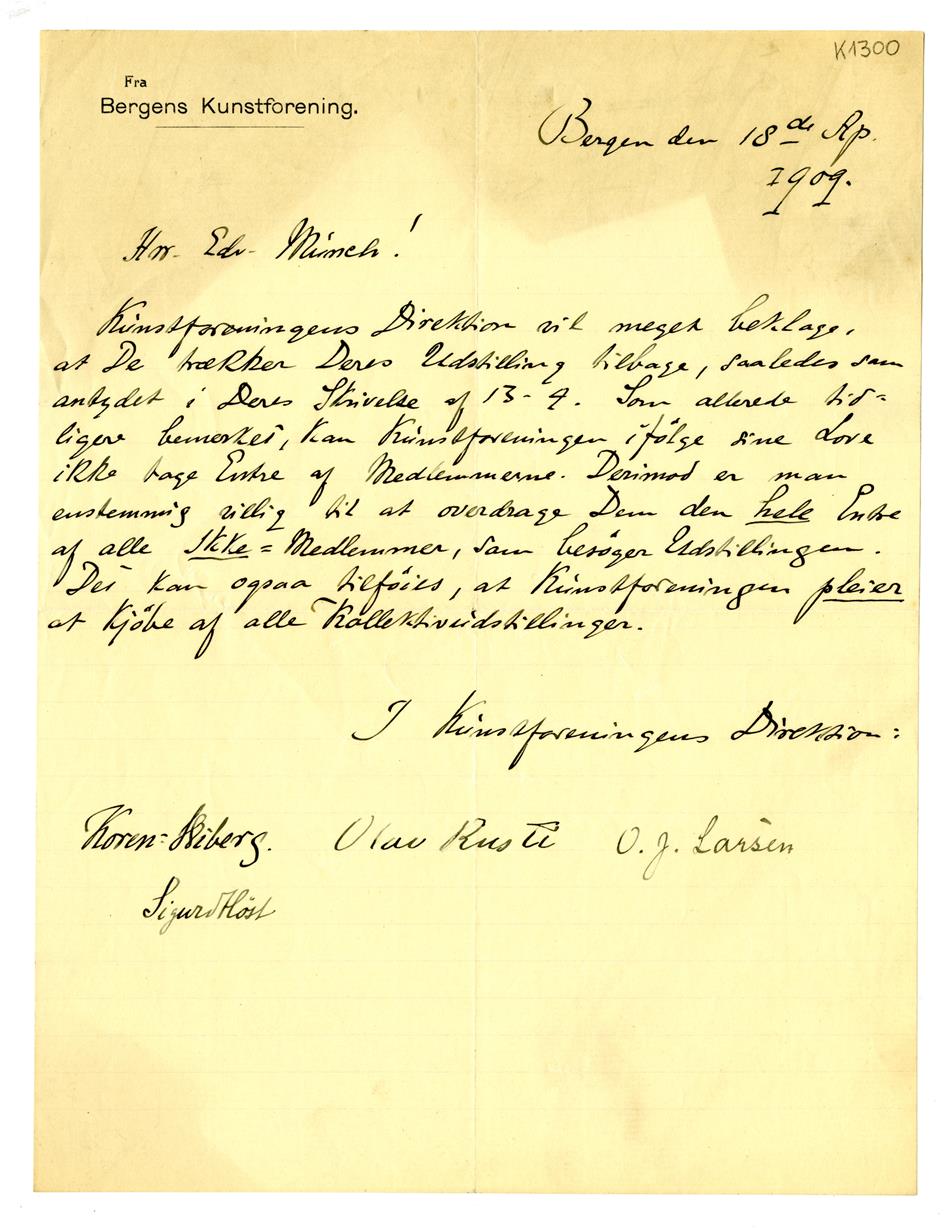 K1300
Fra
Bergens Kunstforening.
Bergen den 18de Ap.
1909.
Hrr. Edv. Munch!
Kunstforeningens Direktion vil meget beklage,
at De trækker Deres Udstilling tilbage, saaledes som
antydet i Deres Skrivelse af 13-4. Som allerede tid=
ligere bemerket, kan Kunstforeningen ifølge sine Love
ikke tage Entre af Medlemmerne. Derimod er man
enstemmig villig til at overdrage Dem den hele Entre
af alle Ikke=Medlemmer, som besöger Udstillingen.
Det kan ogsaa tilföies, at Kunstforeningen pleier
at kjöbe af alle Kollektivudstillinger.
I Kunstforeningens Direktion:
Koren=Wiberg. Olav Rusti O. J. Larsen
Sigurd Höst